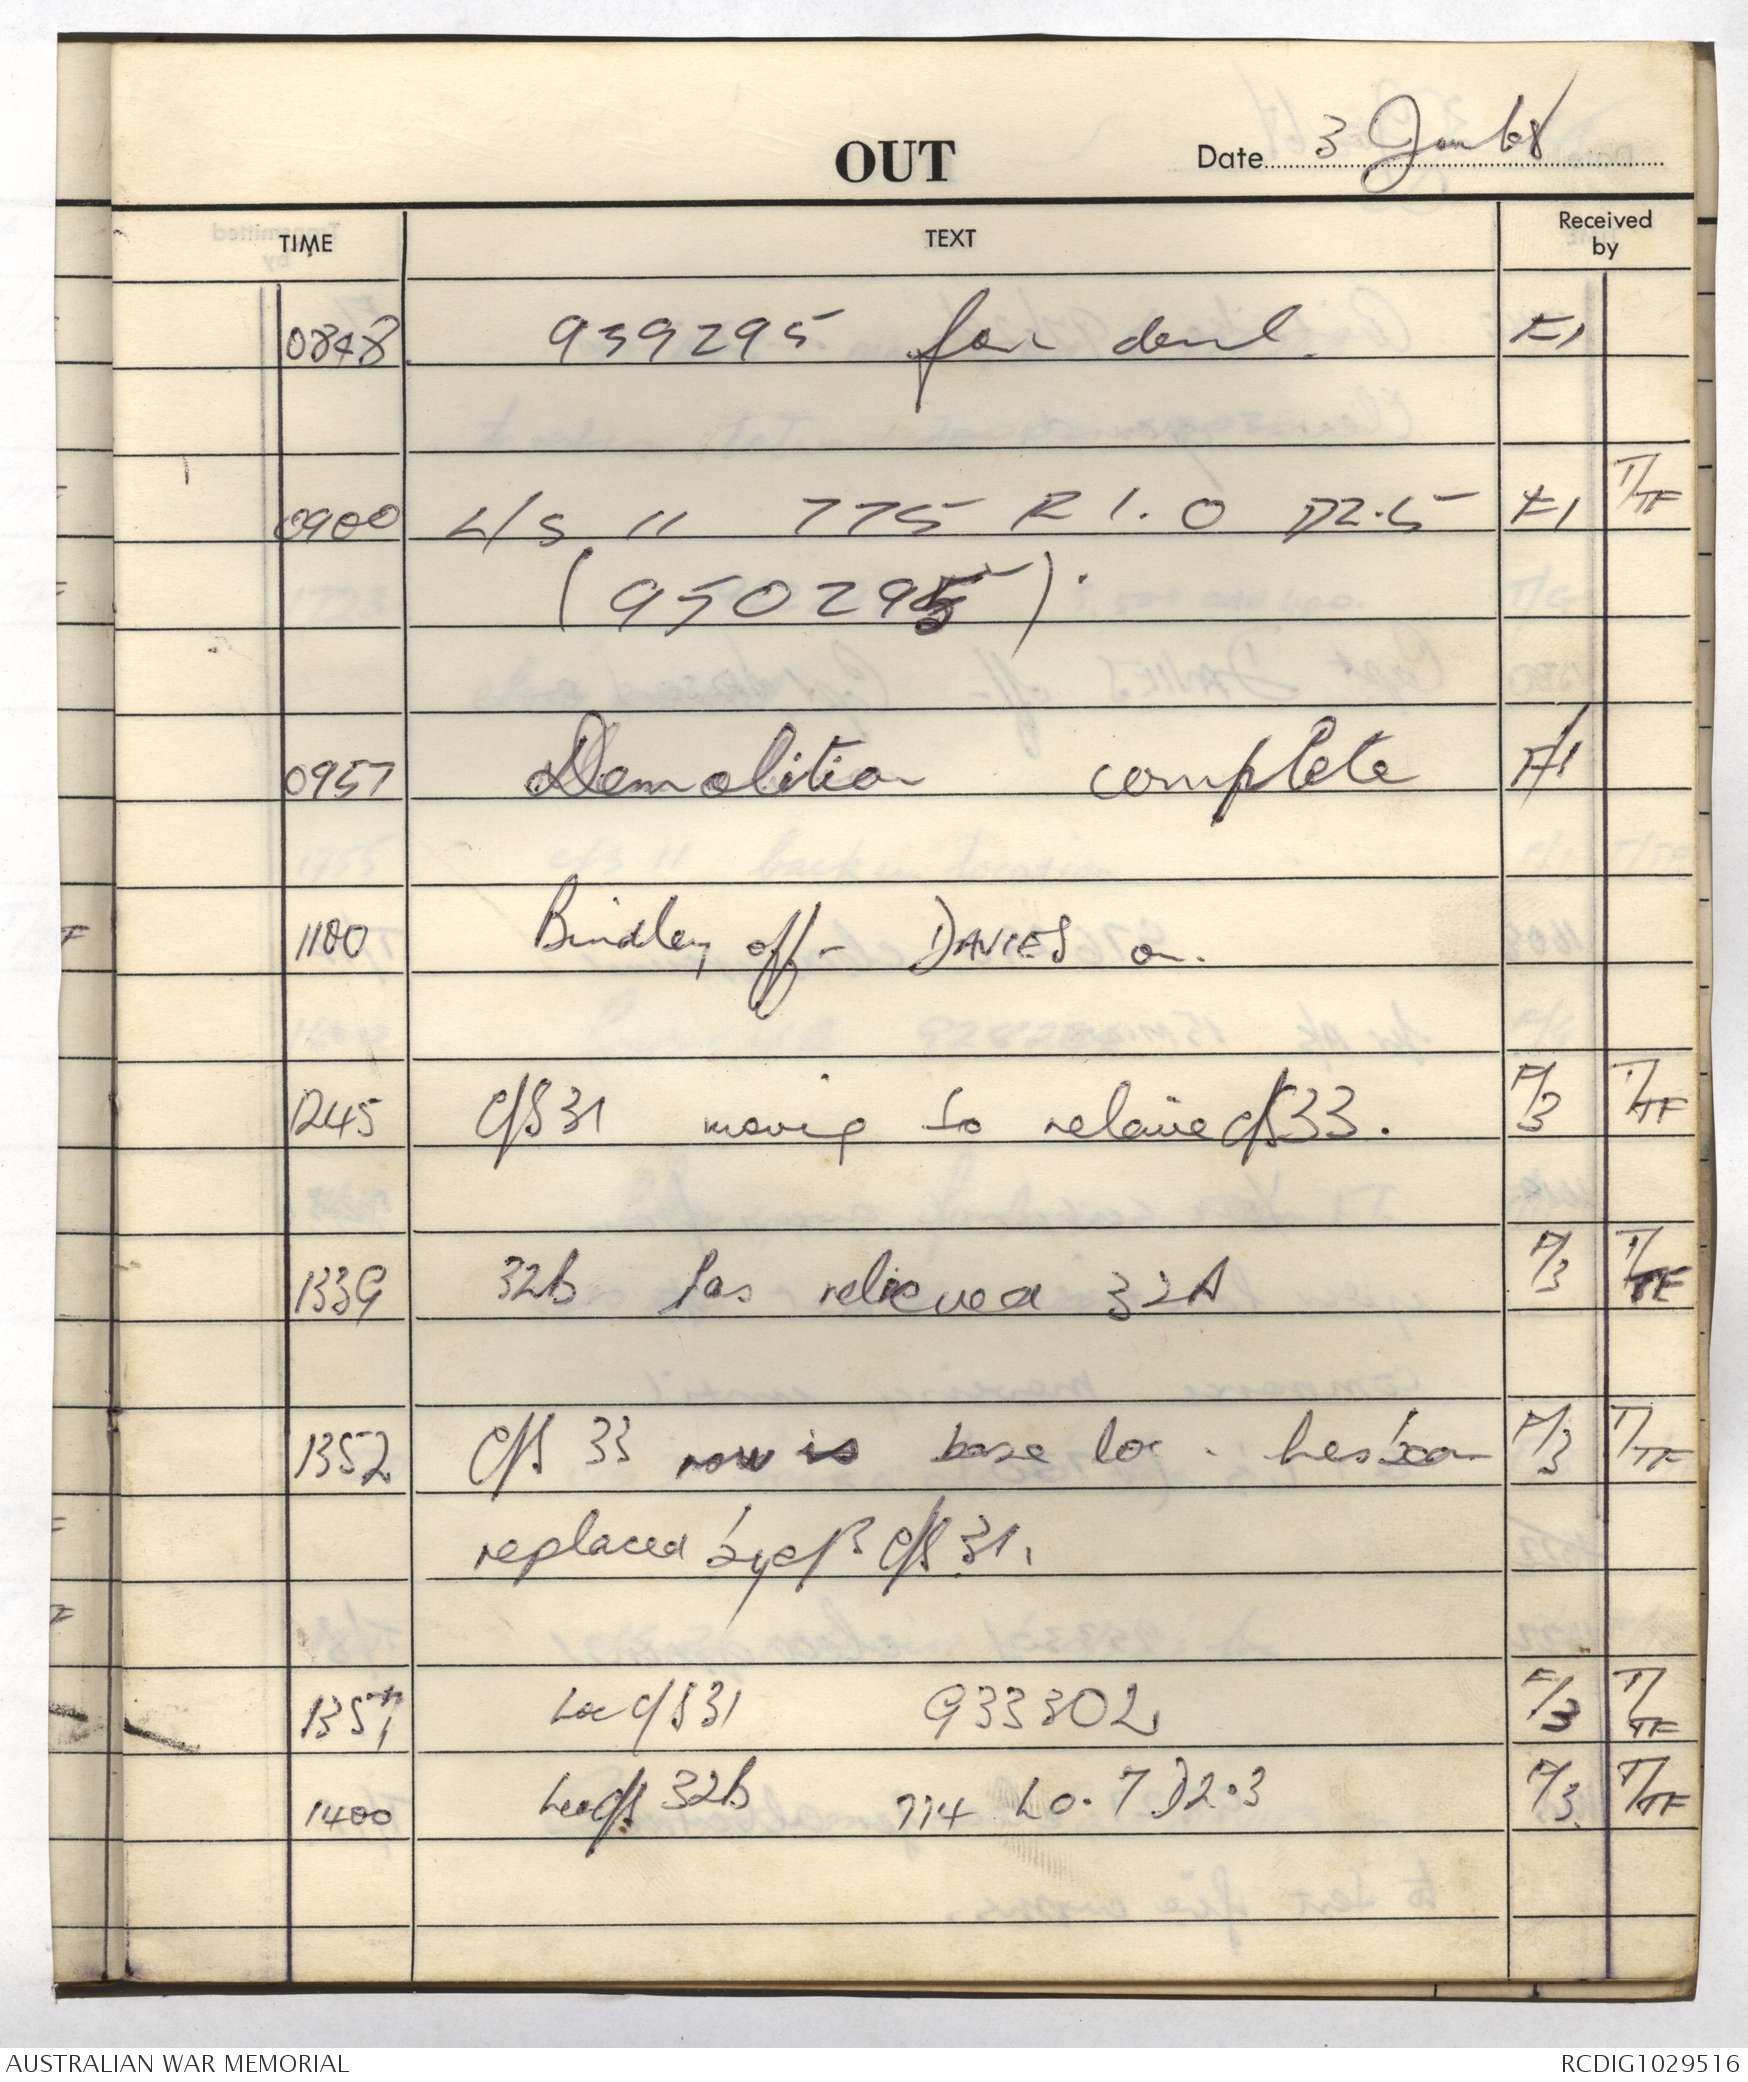 OUT
Date 3 Jan 68
TIME TEXT Received by
0848 939295 for deml. F1
0900 L/S 11 775 R 1.0 D2.5 F1 T/TF
(950295).
0957 Demolition complete F/1
1100 Bindley off - DAVIES on.
1245 C/S 31 moving to relieve C/S 33. F/3 T/TF
1339 32b has relieved 32A F/3 T/TF
1352 C/S 33 now is base loc. has been F/3 T/TF
replaced by C/S 31.
1357 Loc C/S 31 933302 F/3 T/TF
1400 Loc C/S 32b 774 L0.7 D2.3 F/3 T/TF
AUSTRALIAN WAR MEMORIAL RCDIG1029516